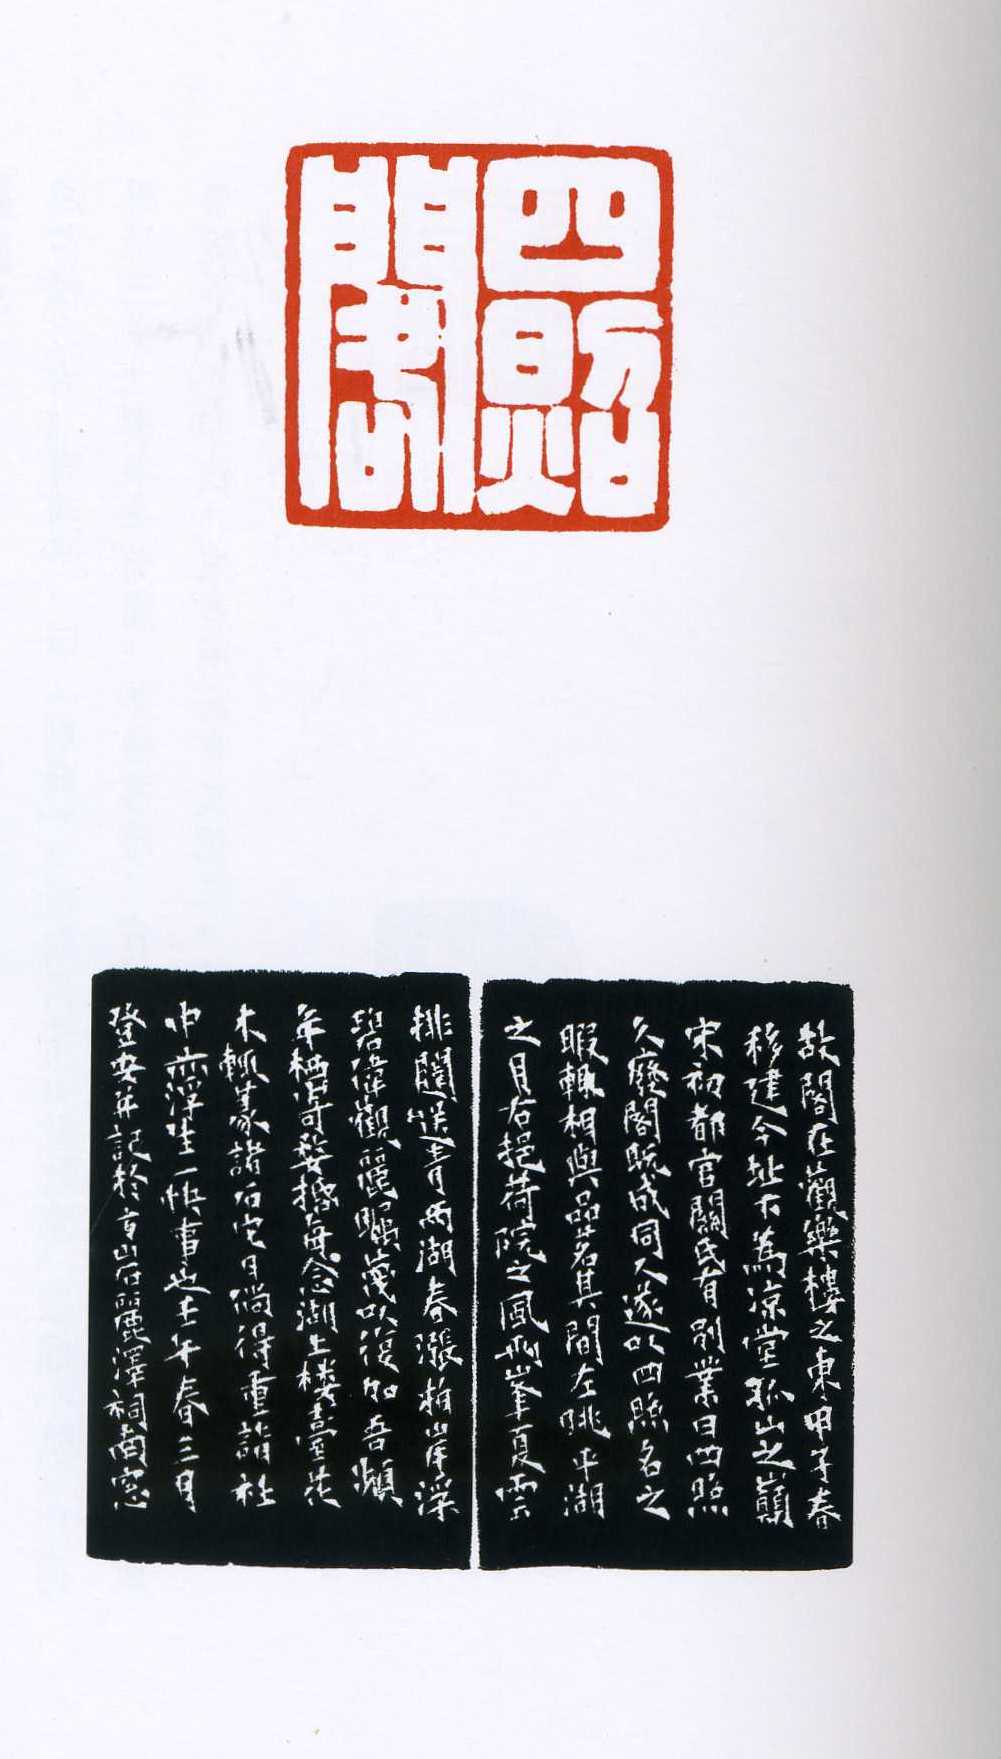 四照
閣
故閣在觀樂樓之東甲子春
移建今址下為涼堂孤山之巔
宋初都官關氏有別業曰四照
久廢閣既成同人遂以四照名之
暇輒相與品茗其間左眺平湖
之月右挹荷院之風兩峯夏雲
排闥送青兩湖春漲柏岸深
碧偉觀麗矚蔑以復加吾嬾
年栖婺每念湖上樓臺花
木輒篆諸石它日倘得重詣社
中亦浮生一快事也壬午春三月
登安并記於方岩麗澤祠南窗